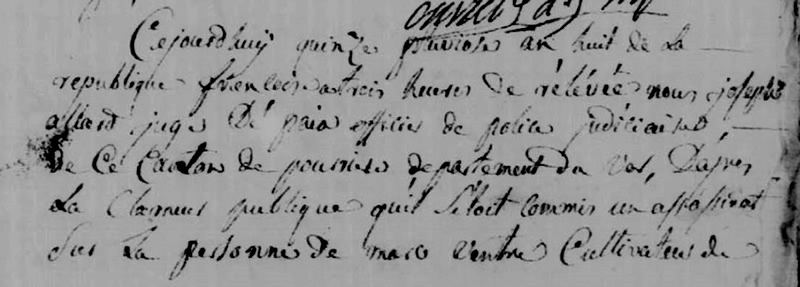 Cejourdhuy quinze pluviose an huit de La
republique francoise a trois heures de rélévée nous joseph
allard juge Dé paix officier de police judiciaire,
de Ce Canton de pourrieres departement du Var, Dapres
La Clameur publique quil Sétoit commis un assassinat
Sur La personne de marc Ventre Cultivateur de